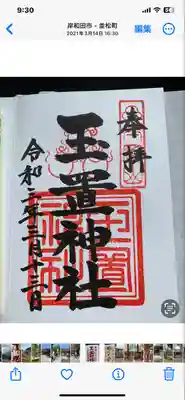 9:30
岸和田市 - 並松町
2021年3月14日 16:30
編集
奉拝
玉置神社
令和三年三月十三日